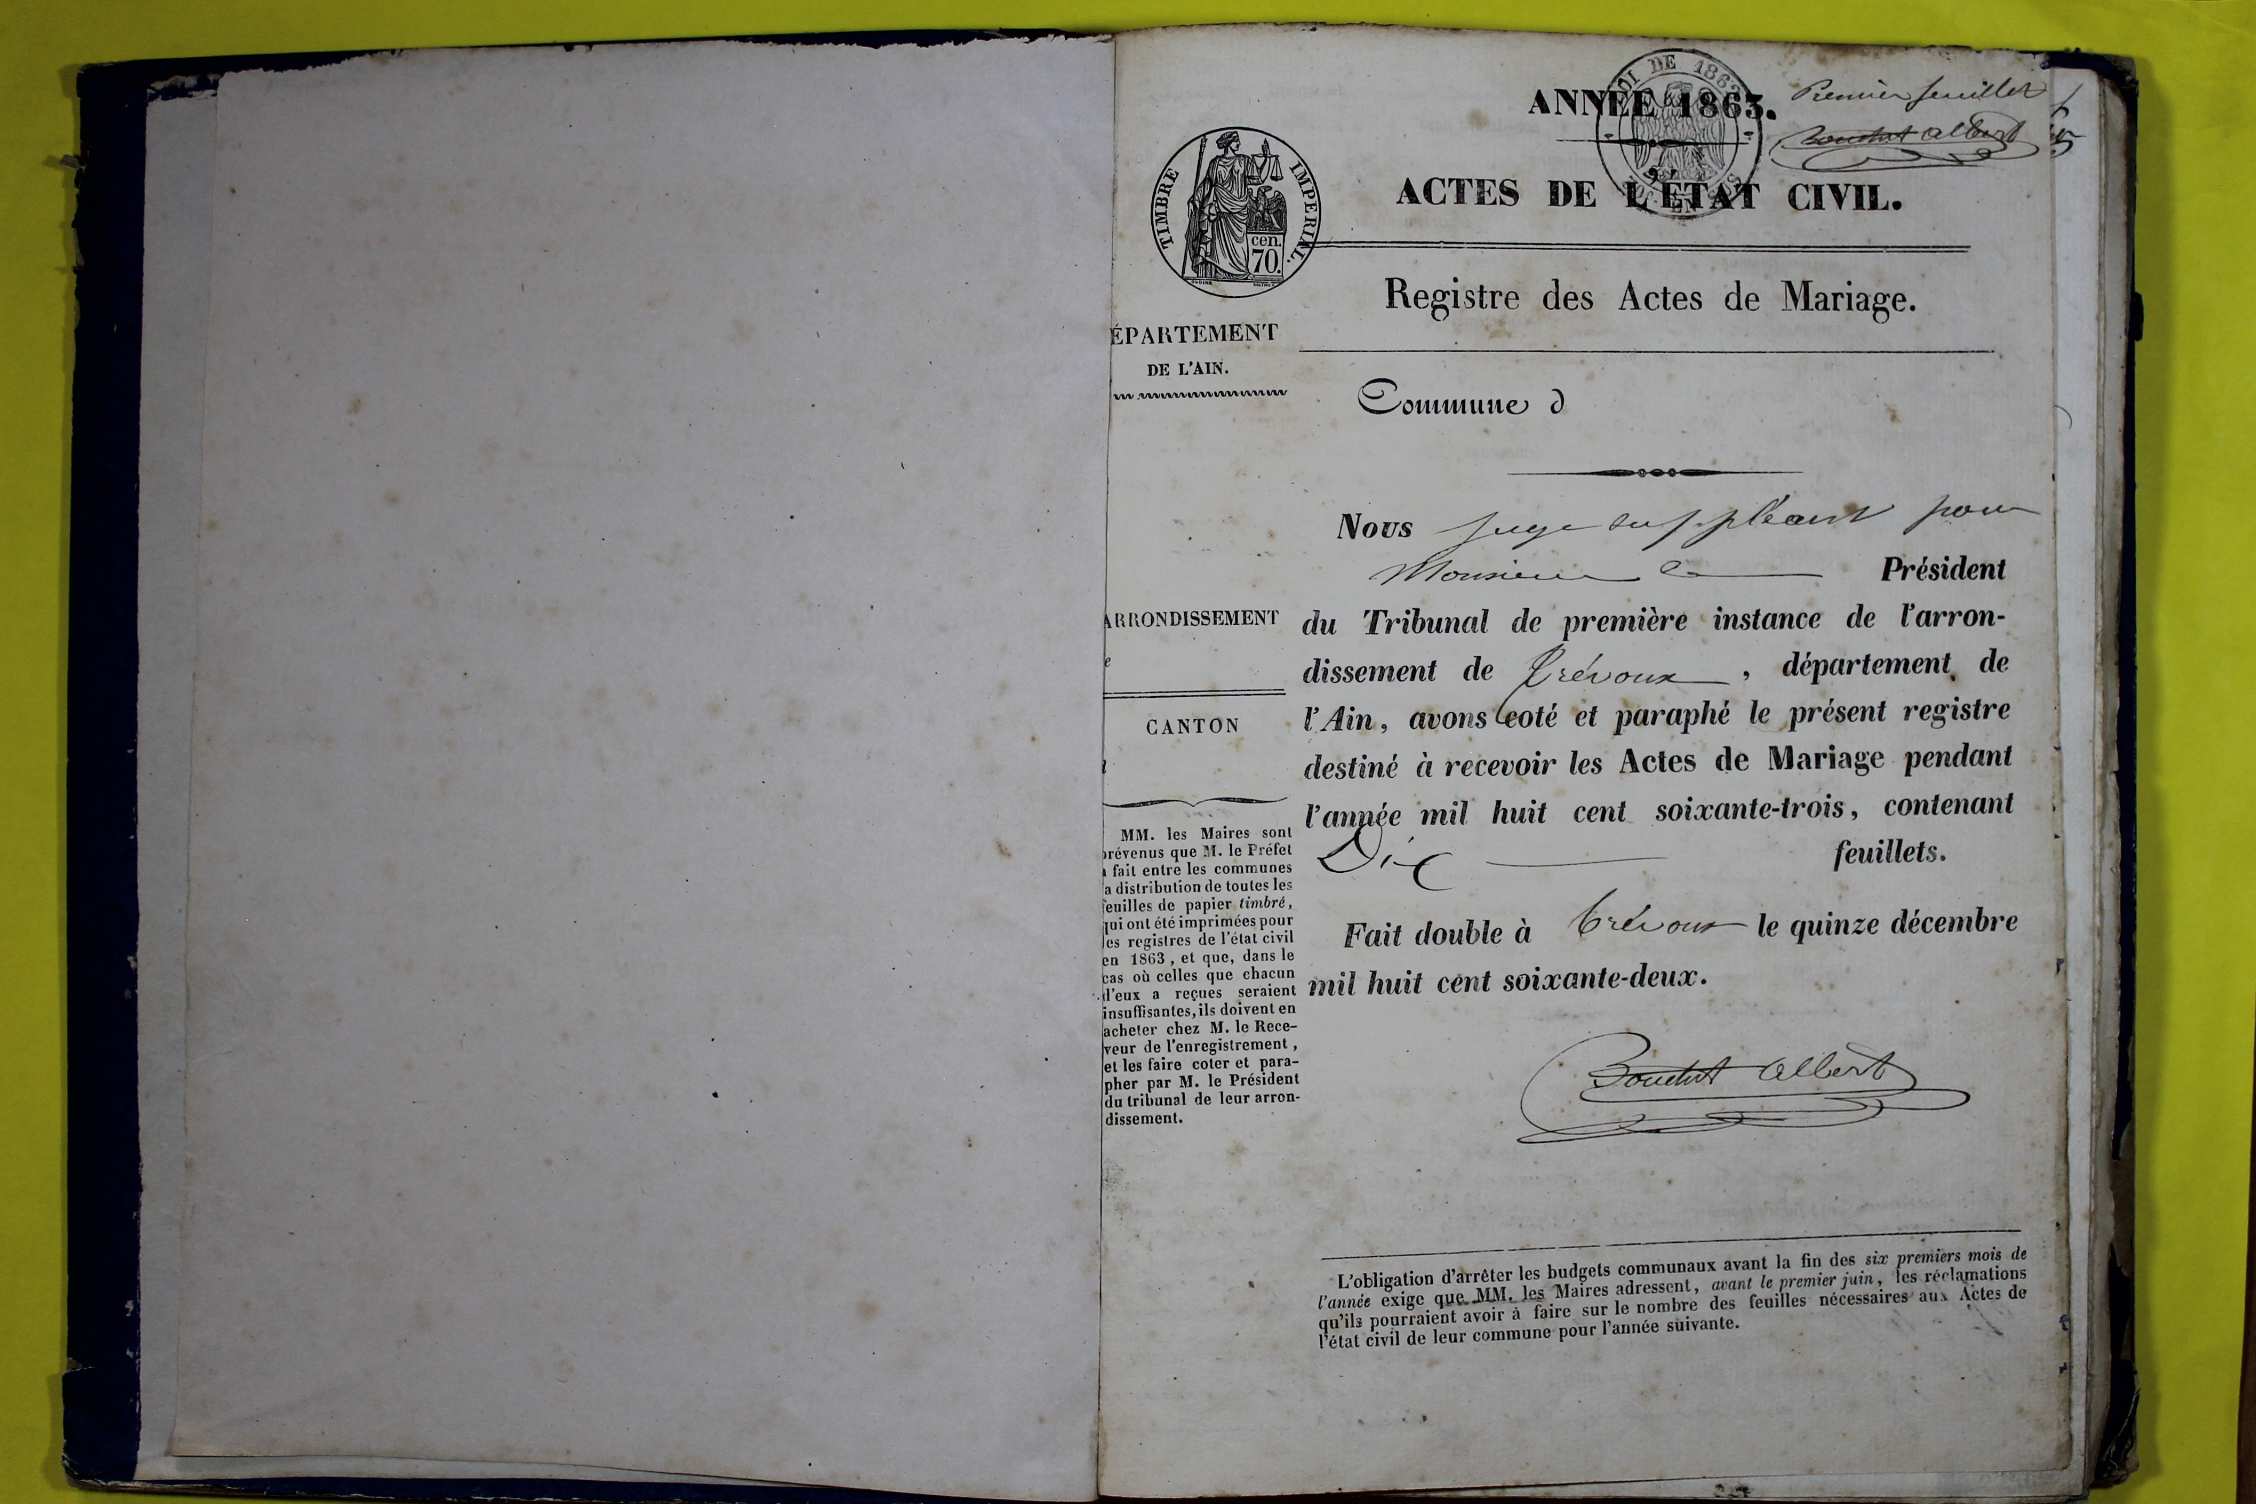 Premier feuillet
Bouchut Albert
ANNÉE 1863.
LOI DE 1862
ACTES DE L'ÉTAT CIVIL.
TIMBRE IMPERIAL.
cen.
70.
Registre des Actes de Mariage.
ÉPARTEMENT
DE L'AIN.
Commune d
Nous juge suppléant pour
Monsieur le Président
ARRONDISSEMENT
e
du Tribunal de première instance de l'arron-
dissement de Trévoux, département de
CANTON
l'Ain, avons coté et paraphé le présent registre
destiné à recevoir les Actes de Mariage pendant
l'année mil huit cent soixante-trois, contenant
Dix feuillets.
Fait double à Trévoux le quinze décembre
mil huit cent soixante-deux.
Bouchut Albert
MM. les Maires sont
prévenus que M. le Préfet
a fait entre les communes
la distribution de toutes les
feuilles de papier timbré,
qui ont été imprimées pour
les registres de l'état civil
en 1863, et que, dans le
cas où celles que chacun
d'eux a reçues seraient
insuffisantes, ils doivent en
acheter chez M. le Rece-
veur de l'enregistrement,
et les faire coter et para-
pher par M. le Président
du tribunal de leur arron-
dissement.
L'obligation d'arrêter les budgets communaux avant la fin des six premiers mois de
l'année exige que MM. les Maires adressent, avant le premier juin, les réclamations
qu'ils pourraient avoir à faire sur le nombre des feuilles nécessaires aux Actes de
l'état civil de leur commune pour l'année suivante.